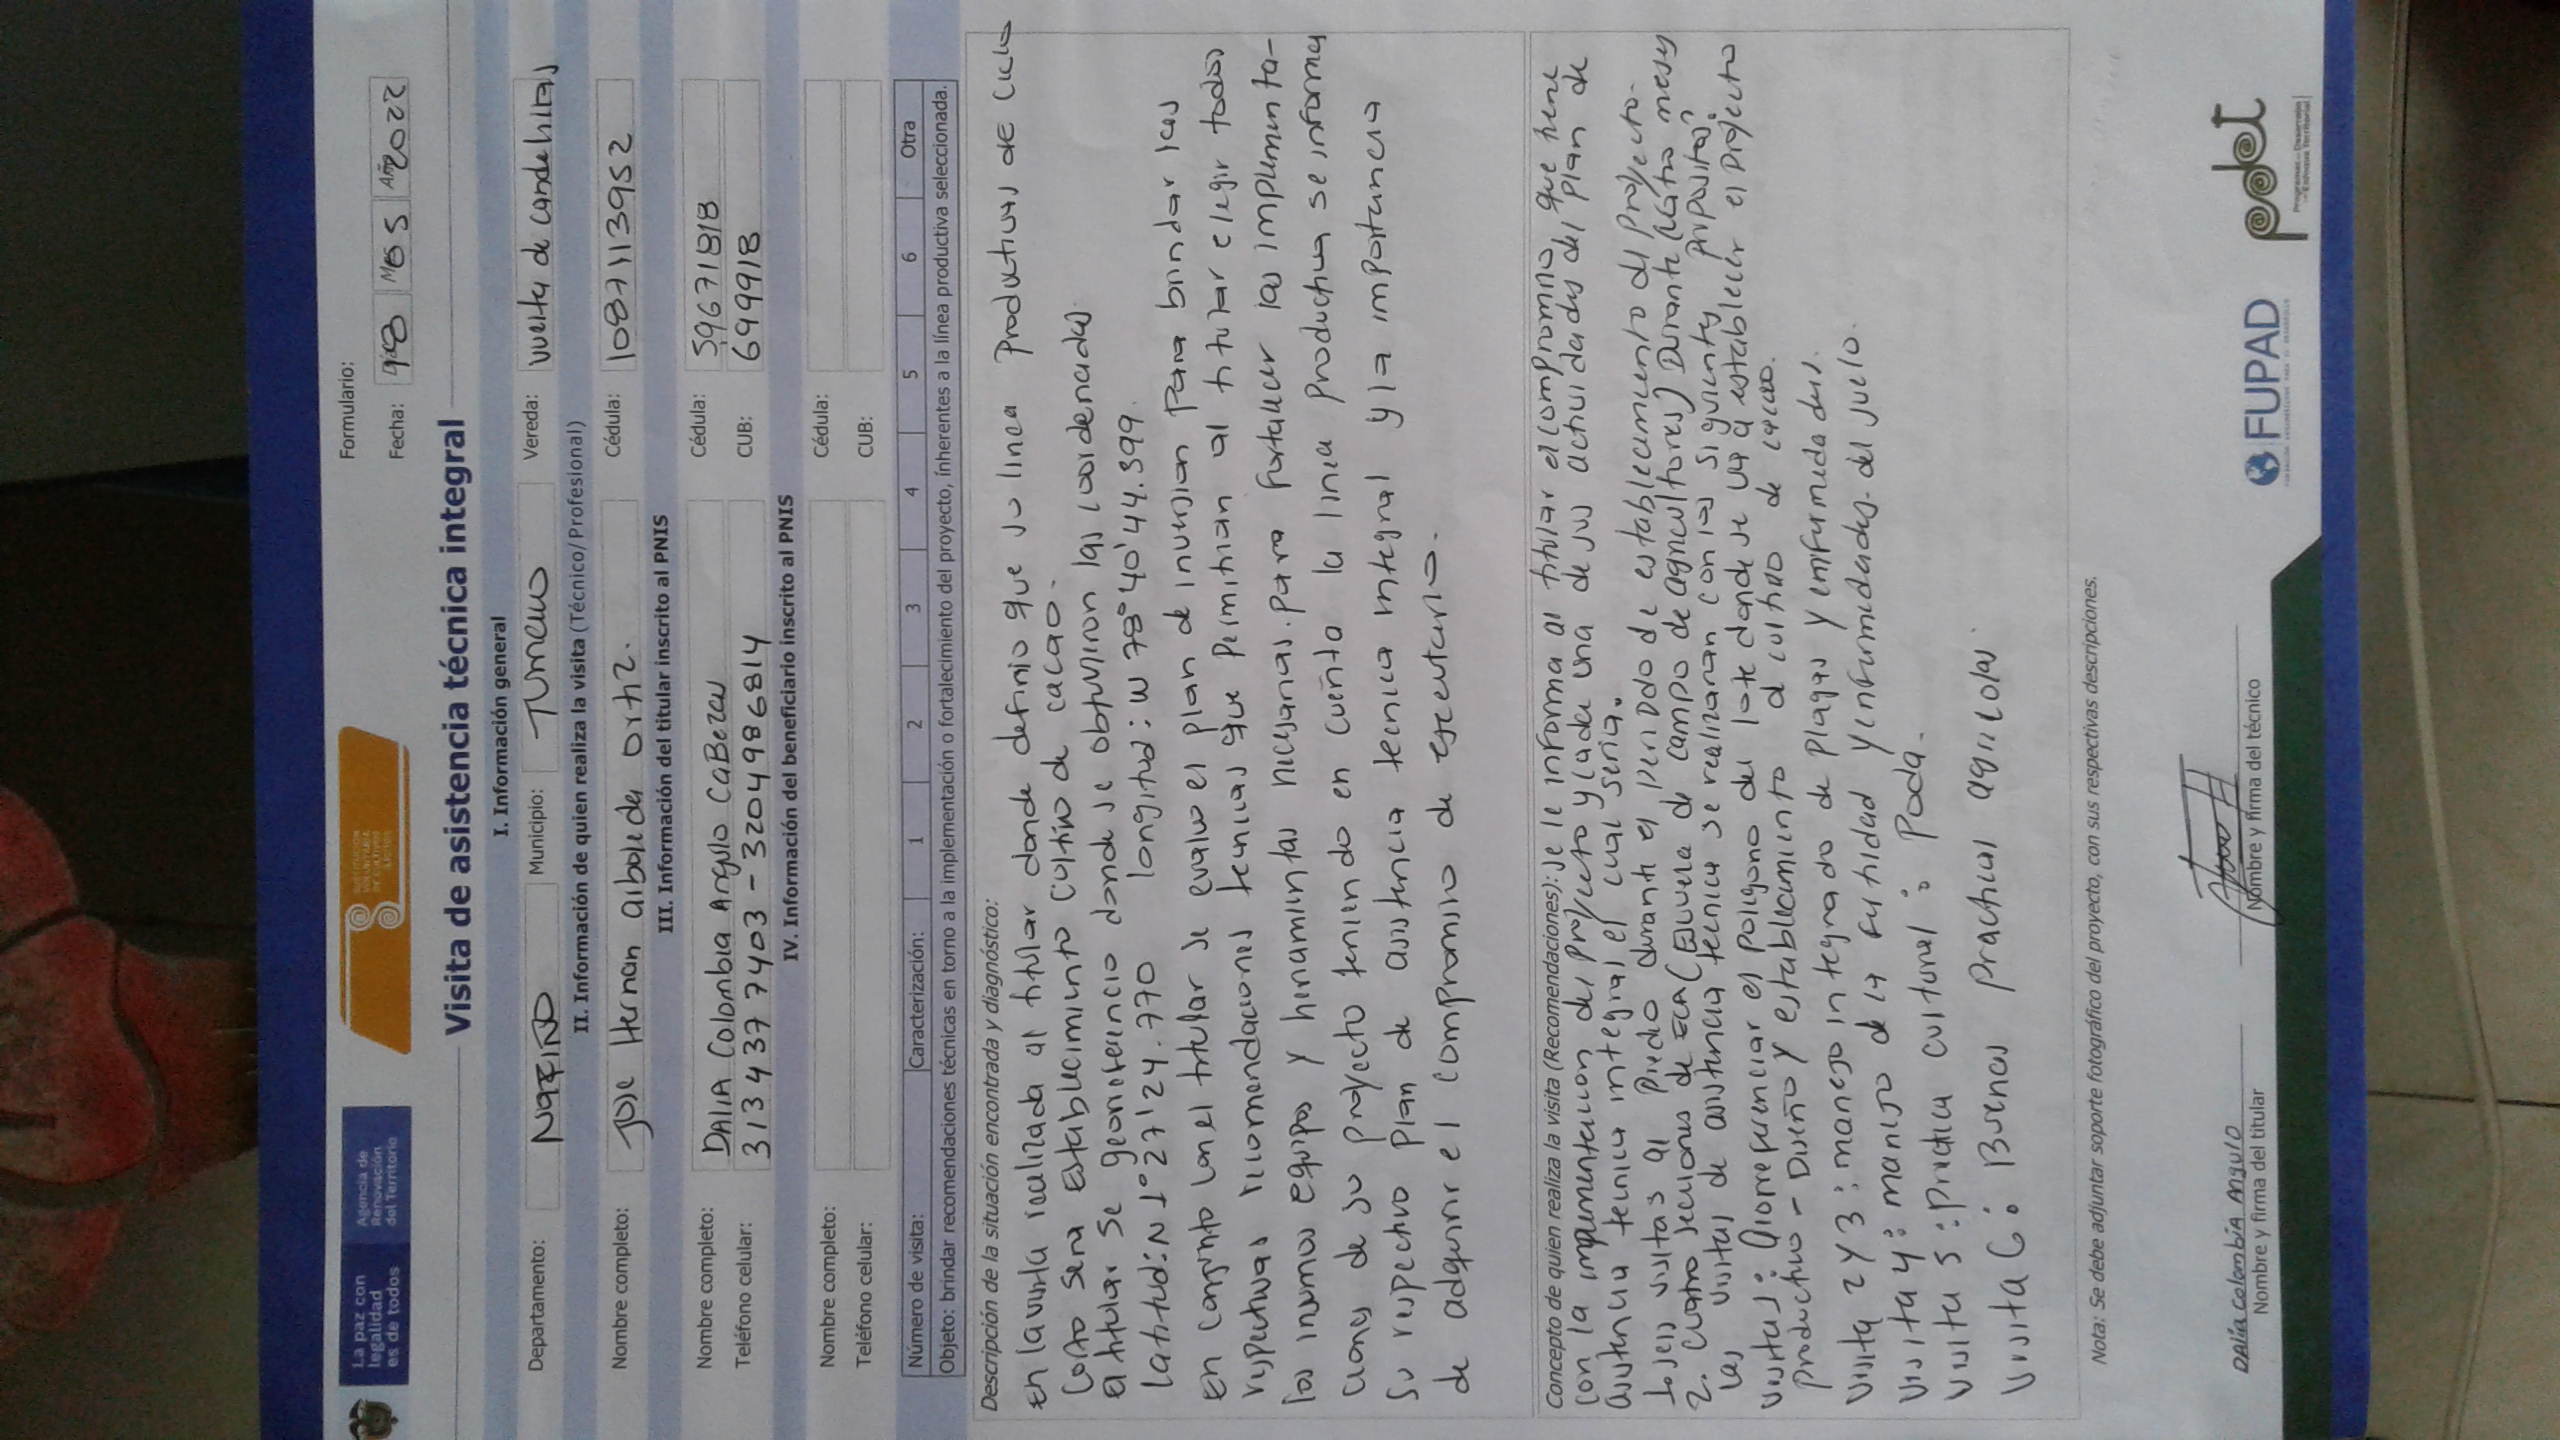 La paz con
legalidad
es de todos
Agencia de
Renovación
del Territorio
SUSTITUCIÓN
VOLUNTARIA
DE CULTIVOS
ILÍCITOS
Formulario:
Fecha: Mes 5 Año 2022
Visita de asistencia técnica integral
I. Información general
Departamento: NARIÑO Municipio: TUMACO Vereda: vuelta de candelillas
II. Información de quien realiza la visita (Técnico/Profesional)
Nombre completo: Jose Hernan arboleda ortiz. Cédula: 1087113952
III. Información del titular inscrito al PNIS
Nombre completo: DALIA Colombia Angulo CaBezas Cédula: 59671818
Teléfono celular: 3134377403 - 3204986814 CUB: 699918
IV. Información del beneficiario inscrito al PNIS
Nombre completo: Cédula:
Teléfono celular: CUB:
Número de visita: Caracterización: 1 2 3 4 5 6 Otra
Objeto: brindar recomendaciones técnicas en torno a la implementación o fortalecimiento del proyecto, inherentes a la línea productiva seleccionada.
Descripción de la situación encontrada y diagnóstico:
En la visita realizada al titular donde definio que su linea Productivas de ciclo
corto sera Establecimiento cultivo de cacao.
El titular se georeferencio donde se obtuvieron las coordenadas
Latitud: N 1°27'24.770 longitud: W 78°40'44.399.
En conjunto con el titular se evaluo el plan de inversion Para brindar las
respectivas recomendaciones tecnicas que permitan al titular elegir todos
los insumos equipos y herramientas necesarias. para fortalecer las implementa-
ciones de su proyecto teniendo en cuenta la linea productiva se informa
su respectivo plan de asistencia tecnica integral y la importancia
de adquirir el compromiso de ejecutarlo.
Concepto de quien realiza la visita (Recomendaciones): se le informa al titular el compromiso, que tiene
con la implementacion del proyecto y cada una de sus actividades del plan de
asistencia tecnica integral el cual seria.
1. seis visitas al Predio durante el periodo de establecimiento del proyecto.
2. cuatro secciones de ECA (Escuela de campo de agricultores) Durante cuatro meses
Las visitas de asistencia tecnica se realizaran con los siguientes propositos:
visita 1: Georeferenciar el poligono del lote donde se va a establecer el proyecto
productivo - Diseño y establecimiento del cultivo de cacao.
visita 2 y 3: manejo integrado de plagas y enfermedades.
visita 4: manejo de la fertilidad y enfermedades del suelo.
visita 5: practica cultural: Poda.
visita 6: Buenas practicas agricolas.
Nota: Se debe adjuntar soporte fotográfico del proyecto, con sus respectivas descripciones.
DALIA Colombia Angulo
Nombre y firma del titular
Nombre y firma del técnico
FUPAD
pdet